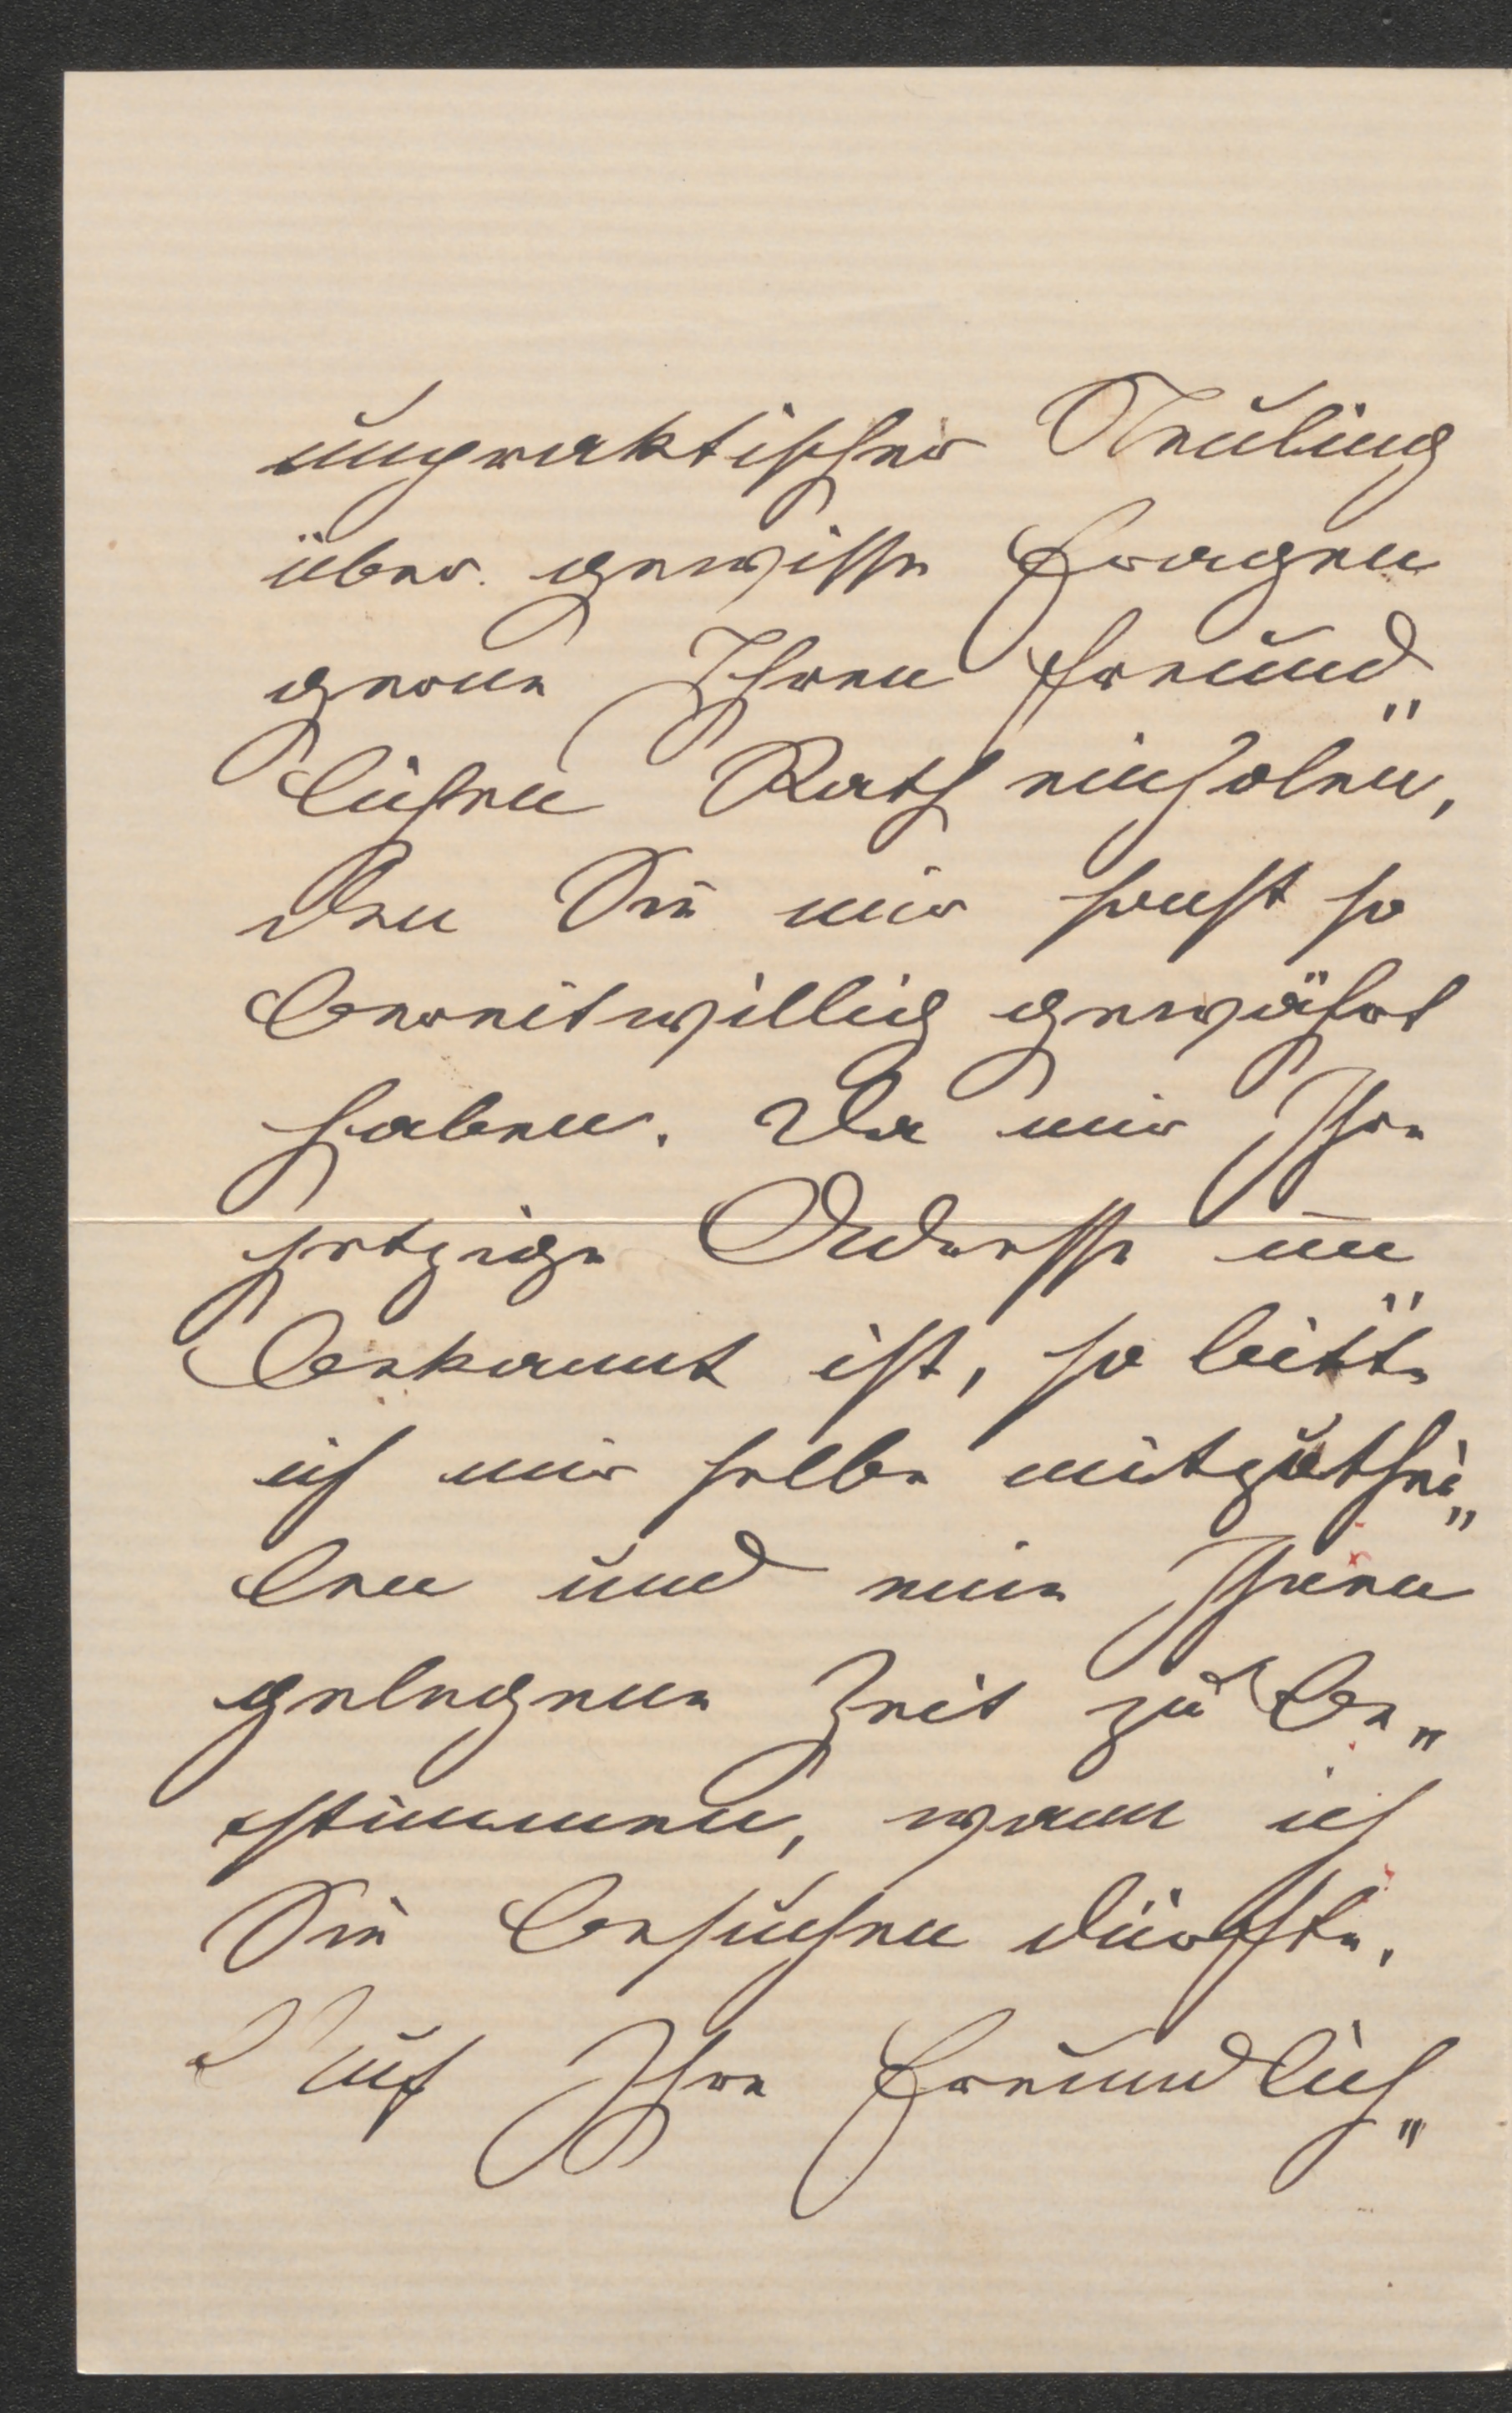 unpraktischer Neuling
über gewisse Fragen
gerne Ihren freund„
lichen Rath einholen,
den Sie mir sonst so
bereitwillig gewährt
haben. Da mir Ihre
jetzige Adresse un„
bekannt ist, so bitte
ich mir selbe mitzuthei„
len und eine Ihnen
gelegene Zeit zu be„
stimmen, wann ich
Sie besuchen dürfte.
Auf Ihre Freundlich„